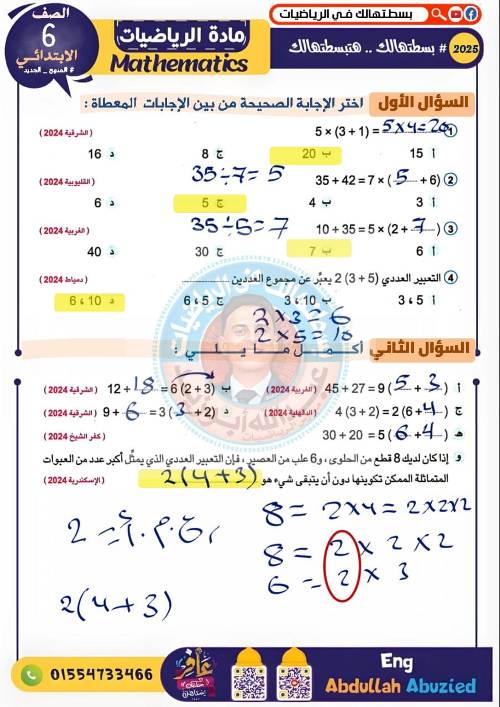 بسطتهالك في الرياضيات
الصف
6
الابتدائي
# المنهج _ الجديد
مادة الرياضيات
Mathematics
2025 # بسطتهالك .. هتبسطهالك
السؤال الأول اختر الإجابة الصحيحة من بين الإجابات المعطاة :
① 5 × (3 + 1) = 5x4=20 (الشرقية 2024)
أ 15 ب 20 ج 8 د 16
35÷7=5
② 35 + 42 = 7 × ( 5 + 6) (القليوبية 2024)
أ 3 ب 4 ج 5 د 6
35÷5=7
③ 10 + 35 = 5 × (2 + 7 ) (الغربية 2024)
أ 6 ب 7 ج 30 د 40
④ التعبير العددي (5 + 3) 2 يعبر عن مجموع العددين (دمياط 2024)
أ 3 ، 5 ب 3 ، 10 ج 6 ، 5 د 10 ، 6
2x3=6
2x5=10
السؤال الثاني أكمل ما يلي :
أ 45 + 27 = 9 ( 5 + 3 ) (الغربية 2024)
ب 12 + 18 = 6 (2 + 3) (الشرقية 2024)
ج 4 (3 + 2) = 2 (6 + 4 ) (الدقهلية 2024)
د 9 + 6 = 3 ( 3 + 2) (الشرقية 2024)
هـ 30 + 20 = 5 ( 6 + 4 ) (كفر الشيخ 2024)
و إذا كان لديك 8 قطع من الحلوى، و6 علب من العصير، فإن التعبير العددي الذي يمثل أكبر عدد من العبوات
المتماثلة الممكن تكوينها دون أن يتبقى شيء هو 2(4+3) (الإسكندرية 2024)
8 = 2x4 = 2x2x2
ع.م.أ = 2
8 = 2 x 2 x 2
6 = 2 x 3
2(4+3)
01554733466
Eng
Abdullah Abuzied